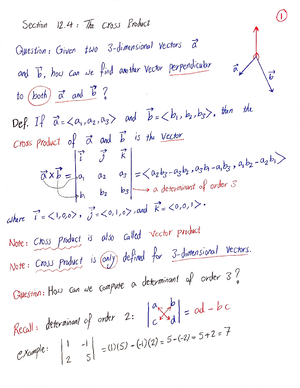 Section 12.4: The Cross Product
①
Question: Given two 3-dimensional vectors a⃗
and b⃗, how can we find another vector perpendicular
to both a⃗ and b⃗?
a⃗ b⃗
Def. If a⃗ = <a₁, a₂, a₃> and b⃗ = <b₁, b₂, b₃>, then the
cross product of a⃗ and b⃗ is the vector
a⃗ × b⃗ = | i⃗ j⃗ k⃗ |
| a₁ a₂ a₃ | = <a₂b₃ - a₃b₂, a₃b₁ - a₁b₃, a₁b₂ - a₂b₁>
| b₁ b₂ b₃ | → a determinant of order 3
where i⃗ = <1,0,0>, j⃗ = <0,1,0>, and k⃗ = <0,0,1>.
Note: Cross product is also called vector product
Note: Cross product is only defined for 3-dimensional vectors.
Question: How can we compute a determinant of order 3?
Recall: determinant of order 2: | a b |
| c d | = ad - bc
example: | 1 -1 |
| 2 5 | = (1)(5) - (-1)(2) = 5 - (-2) = 5 + 2 = 7